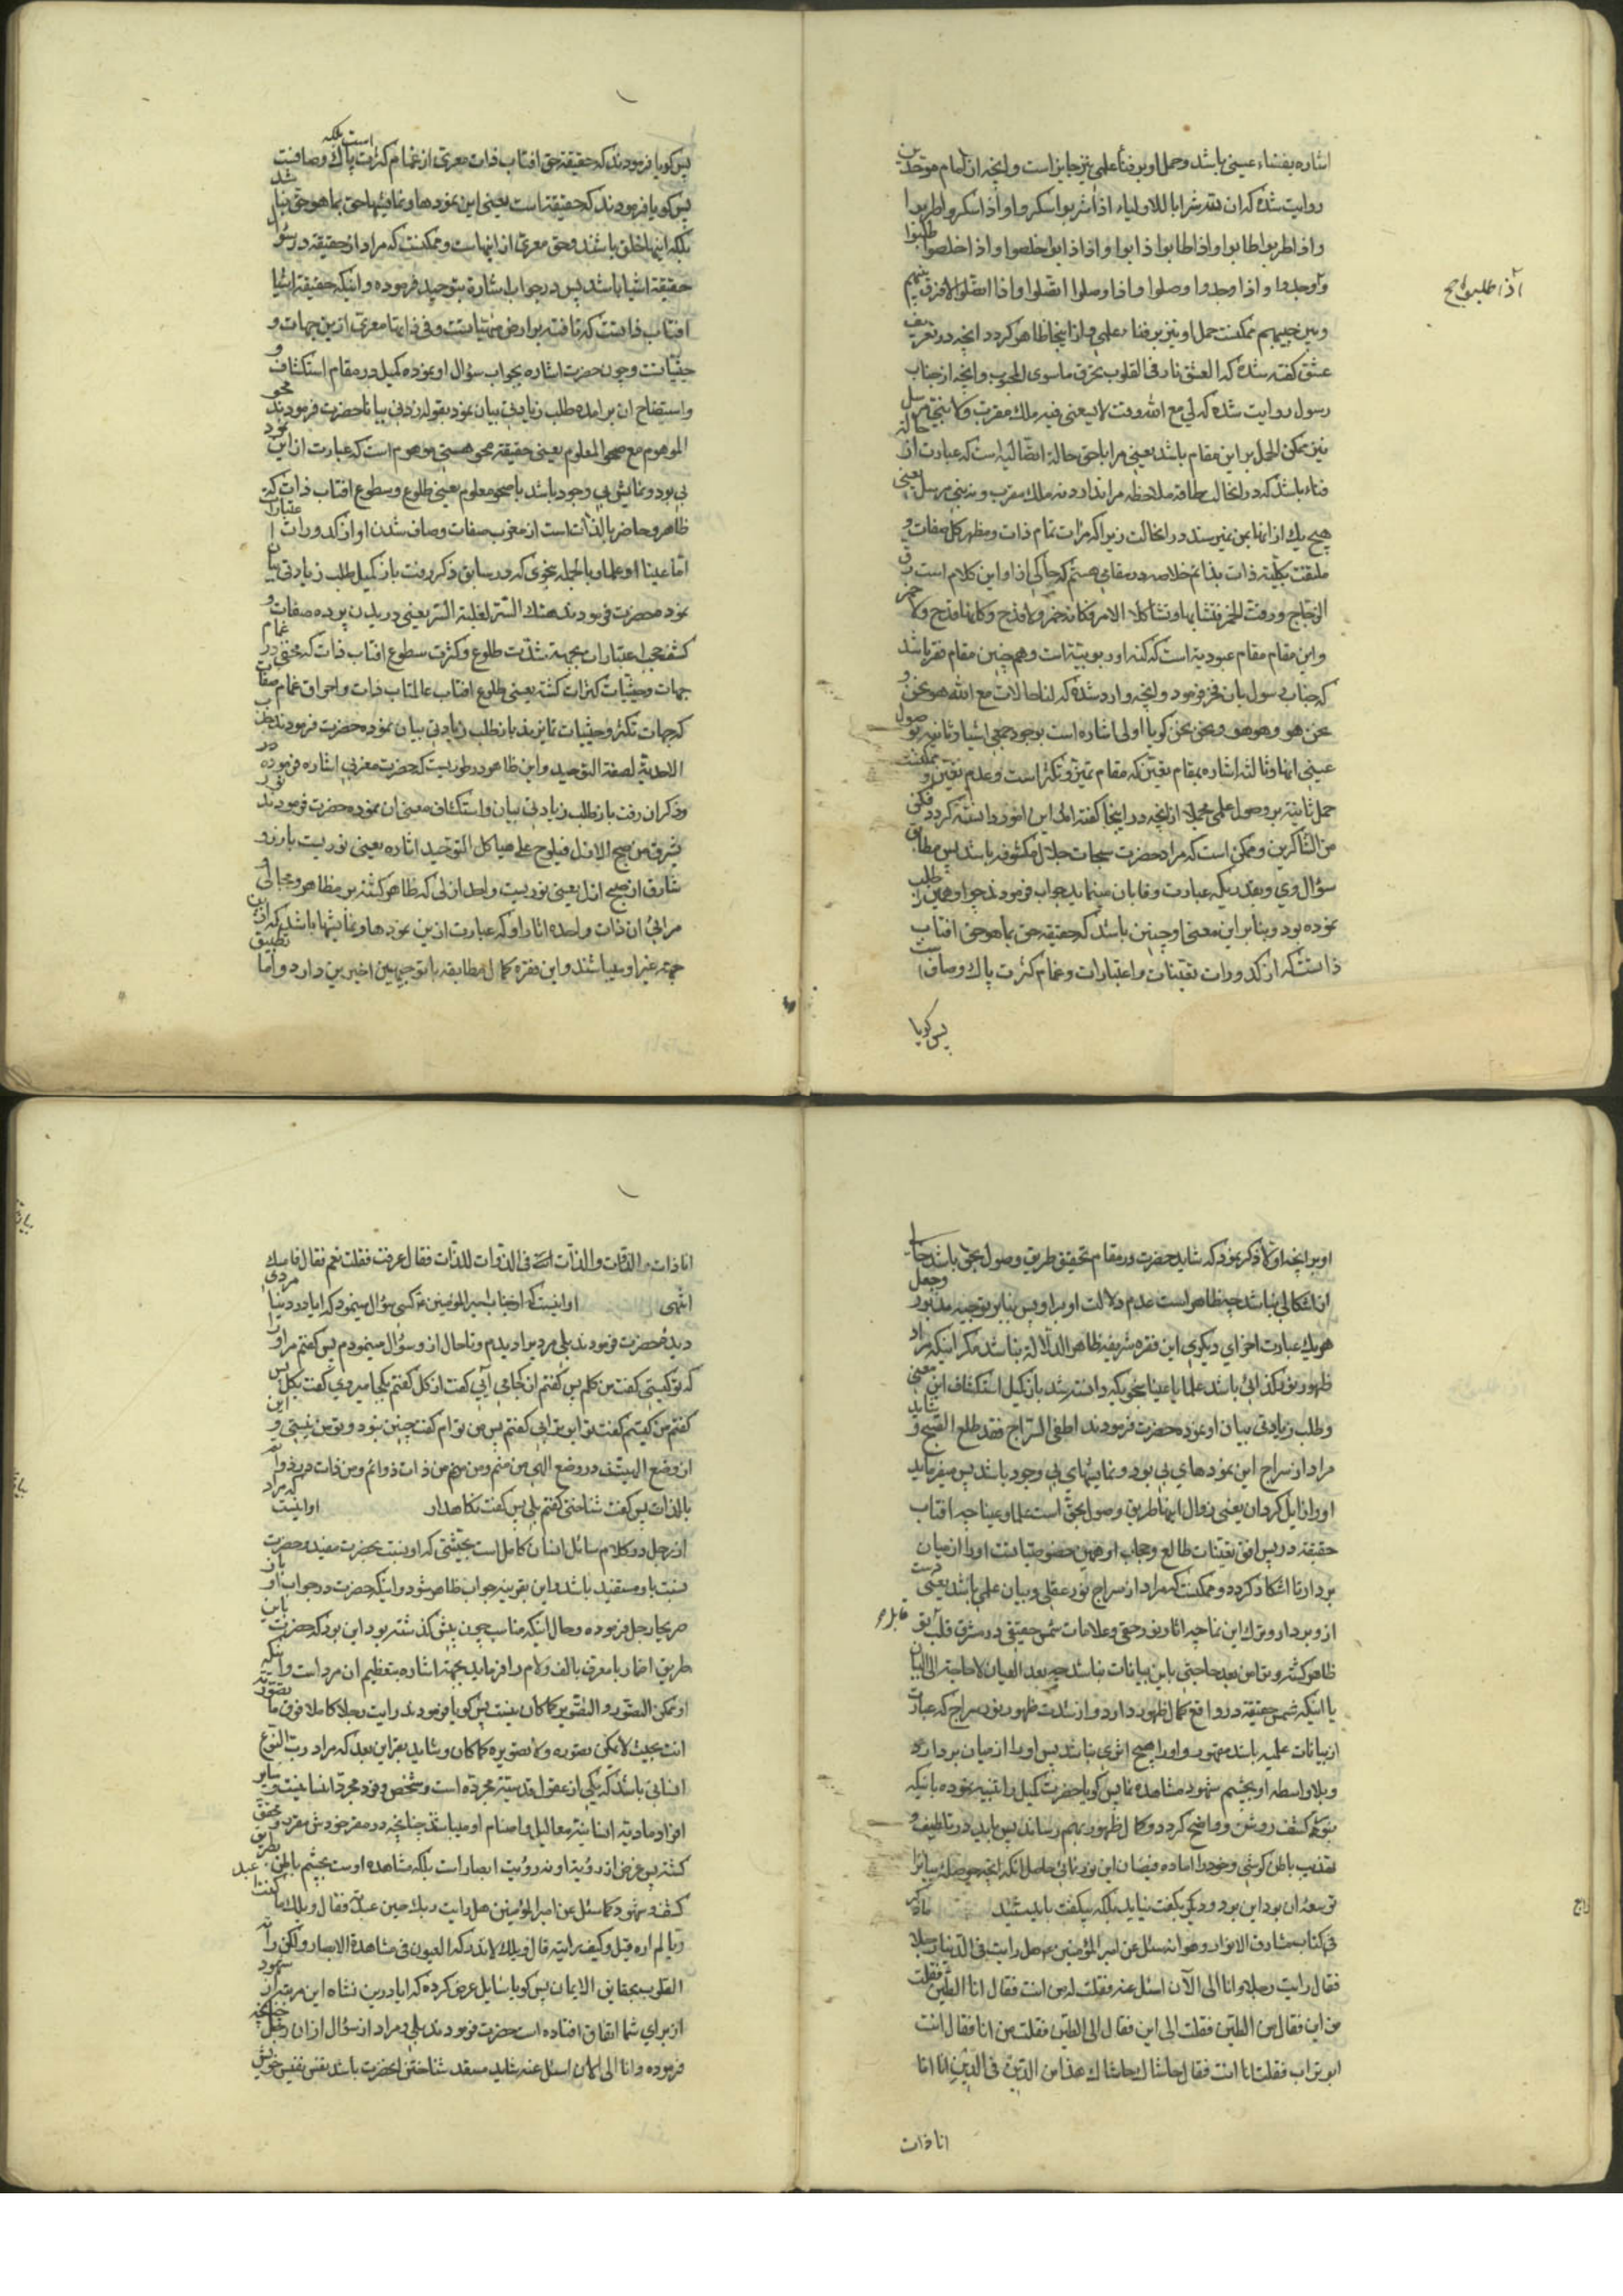 اشاره بفناء عینی باشد وحمل او بر فناء علمی نیز جایز است وانچه از امام موحدین
روایت شده که ان لله شرابا لاولیاء اذا شربوا سکروا واذا سکروا طربوا
واذا طربوا طابوا واذا طابوا ذابوا واذا ذابوا خلصوا واذا خلصوا طلبوا
وأوجدوا واذا وجدوا وصلوا واذا وصلوا اتصلوا واذا اتصلوا لا فرق بینهم
وبین حبیبهم ممکنست حمل او نیز بر فناء علمی واز اینجا ظاهر کردد انچه در تعریف
عشق کفته شده که العشق نار فی القلوب یحرق ماسوی المحبوب وانچه از جناب
رسول روایت شده که لی مع الله وقت لا یسعنی فیه ملك مقرب ولا نبی مرسل
نیز ممکن الحمل بر این مقام باشد یعنی مرا باحق حالة اتصالیه است که عبارت از حالة
فناء باشد که در انحالت طاقة ملاحظه مرا ندارد نه ملك مقرب و نه نبی مرسل یعنی
هیچ یك از انها بمن نمیرسند در انحالت زیرا که مرات تمام ذات ومظهر کل صفات و
ملتفت بکلیة ذات بذاتم خلاصه در مقامی هستم که حاکی از او این کلام است رق
الزجاج ورقت الخمر فتشابها وتشاکل الامر فکانه خمر ولا قدح وکانها قدح ولا خمر
واین مقام مقام عبودیة است که کنه او ربوبیة است وهم چنین مقام فقر باشد
که جناب رسول بان فخر فرمود وانچه وارد شده که لنا حالات مع الله هو نحن و
نحن هو وهو هو ونحن نحن کویا اولی اشاره است بوجود جمعی اشیا وثانیه بوصول
عینی انها وثالثه اشاره بمقام تعین که مقام تمیز وتکثر است وعدم تعین و ممکنست
حمل ثانیه بر وصول علمی محملا از انچه در اینجا کفته اند این امور دانسته کردد فکن
من الشاکرین وممکن است که مراد حضرت سبحات جلال مکشوفه باشد پس مطابق
سؤال وی وبقدریکه عبارت وفا بان مینماید جواب فرمودند چو او همین را طلب
نموده بود وبنابر این معنی او چنین باشد که حقیقه حق بما هو حق افتاب
ذاتست که از کدورات تعینات واعتبارات وغمام کثرت پاك وصافست
پس کویا
اذا طلبوا صح
پس کویا فرمودند که حقیقة حق افتاب ذات معری از غمام کثرت پاك وصافیست است بلکه
پس کویا فرمودند که حقیقة است یعنی این نمودها ونمایشها حق بما هو حق نباشد
بلکه اینها خلق باشند وحق معری از اینهاست وممکنست که مراد از حقیقه در سؤال
حقیقة اشیا باشد پس در جواب اشاره بتوحید فرموده واینکه حقیقة اشیا
افتاب ذاتست که تافته بر ارض مهیات وفی ذاتها معری از این جهات و
حیثیاتست وچون حضرت اشاره بجواب سؤال او نموده کمیل در مقام استکشاف و
واستیضاح ان برامده طلب زیادتی بیان نمود بقوله زدنی بیانا حضرت فرمودند محو
الموهوم مع صحو المعلوم یعنی حقیقة محو هستی موهوم است که عبارت از این نمود
بی بود ونمایش بی وجود باشد با صحو معلوم یعنی طلوع وسطوع افتاب ذات که
ظاهر وحاضر بالذات است از مغرب صفات وصاف شدن او از کدورات اعتبارات
اما عینا او علما وبالجمله بنحوی که در سابق ذکر رفت باز کمیل طلب زیادتی بیان
نمود حضرت فرمودند هتك الستر لغلبة السر یعنی دریدن پرده صفات و
کشف حجب اعتبارات بجهة شدت طلوع وکثرت سطوع افتاب ذات که مختفی در غمام
جهات وحیثیات کثرات کشته یعنی طلوع افتاب عالمتاب ذات واحراق غمام صفات
که جهات تکثر وحیثیات تمایزند باز طلب زیادتی بیان نموده حضرت فرمودند جذب
الاحدیة لصفة التوحید واین ظاهر در طوریست که حضرت معزبی اشاره فرموده در
وذکر ان رفت باز طلب زیادتی بیان واستکشاف معنی ان نموده حضرت فرمودند نور
یشرق من صبح الازل فیلوح علی هیاکل التوحید اثاره یعنی نوریست بارز و
شارق از صبح ازل یعنی نوریست واحد ازلی که ظاهر کشته بر مظاهر ومجالی و
مرائی ان ذات واحده اثار او که عبارت از این نمودها ونمایشها باشد که از این
جهة غیر او نباشند واین فقره کمال مطابقه با توجیهین اخیرین دارد واما تطبیق
او بر انچه اولا ذکر نمود که شاید حضرت در مقام تحقیق طریق وصول بحق باشد خالی
از اشکالی نباشد چه ظاهر است عدم دلالت او بر او پس بنابر توجیه مذبور وجعل
هر یك عبارت اخرای دیکری این فقره شریفه ظاهر الدلاله نباشد مکر اینکه مراد
ظهور نور کذائی باشد علما یا عینا بنحویکه دانسته شد باز کمیل استکشاف این معنی
وطلب زیادتی بیان او نموده حضرت فرمودند اطفی السراج فقد طلع الصبح و شاید
مراد از سراج این نمودهای بی بود ونمایشهای بی وجود باشد پس میفرماید
او را زایل کردان یعنی زوال اینها طریق وصول بحق است علما وعینا چه افتاب
حقیقه در پس افق تعینات طالع وحجاب او همین خصوصیاتست او را از میان
بردار تا اشکار کردد وممکنست که مراد از سراج نور عقلی وبیان علمی باشد یعنی دست
از او بردار وترك این نما چه اثار نور حق وعلامات شمس حقیقی در مشرق قلب تو
ظاهر کشته وتو را من بعد حاجتی باین بیانات نباشد چه بعد العیان لا حاجة الی البیان
یا اینکه شمس حقیقة در واقع کمال ظهور دارد واز شدت ظهور نور سراج که عبارت
از بیانات علمیه باشد مقهور واو را هیچ اثری نباشد پس او را از میان بردار و
وبلا واسطه او بچشم شهود مشاهده نما پس کویا حضرت کمیل را تنبیه نموده باینکه
بنحو کشف روشن وواضح کردد وکمال ظهور بهم رساند پس باید در تلطیف و
تهذیب باطن کوشی وخود را اماده فیضان این نور نمائی حاصل انکه انچه حوصله بیان را
توسعه ان بود این بود ودیکر بکفت نیاید بلکه بیکفت باید شنید
فی کتاب مشارق الانوار وهو انه سئل عن امیر المؤمنین هل رایت فی الدنیا رجلا
فقال رایت رجلا وانا الی الآن اسئل عنه فقلت له من انت فقال انا الطین فقلت
من این فقال من الطین فقلت الی این فقال الی الطین فقلت من انا فقال انت
ابو تراب فقلت انا انت فقال حاشاك حاشاك هذا من الدین فی الدین انا انا
انا ذات
انا ذات الذوات والذات فی الذوات للذات فقال عرفت فقلت نعم فقال فامسك
انتهی اوانیست که از جناب امیر المؤمنین ع کسی سؤال مینمود که ایا در دنیا مردی
دیدۀ حضرت فرمودند بلی مردیرا دیدم وتا حال از او سؤال مینمودم پس کفتم مر او را
که تو کیستی کفت من کلم پس کفتم از کجا می آیی کفت از کل کفتم بکجا میروی کفت بکل پس
کفتم من کیستم کفت تو ابو ترابی کفتم پس من توام کفت چنین نبود وتو من نیستی و این
بالذات پس کفت شناختی کفتم بلی پس کفت نکاهدار اوانیست که مراد
از رجل در کلام سائل انسان کامل است بحیثیتی که او نسبت بحضرت مفید وحضرت
نسبت باو مستفید باشد واین بقرینه جواب ظاهر شود واینکه حضرت در جواب او باز
صریحا رجل فرموده وحال اینکه مناسب چون پیش کذشته بود این بود که حضرت باین
طریق اضمار یا معرف بالف ولام را فرماید بجهة اشاره بتعظیم ان مرد است واینکه
او ممکن التصور والتصویر کما کان نیست پس کویا فرمودند رایت رجلا کاملا فوق ما تصوره
انت بحیث لا یمکن تصوره ولا تصویره کما کان وشاید بقراین بعد که مراد رب النوع
انسانی باشد که یکی از عقول قدسیه مجرده است وشخص وفرد مجرد انسانیست و سایر
افراد مادیه انسانیة معالیل واصنام او میباشند چنانچه در مقر خودش مقرر و محقق
کشته پس غرض از رؤیة او نه رؤیت ابصار است بلکه مشاهده اوست بچشم باطن بطریق
کشف وشهود کما سئل عن امیر المؤمنین هل رایت ربك حین عبدته فقال ویلك ما کنت اعبد
ربا لم اره قیل وکیف رایته قال ویلك لا تدرکه العیون فی مشاهدة الابصار ولکن رأته
القلوب بحقایق الایمان پس کویا سایل عرض کرده که ایا در این نشاه این مرتبه از شهود
از برای شما اتفاق افتاده است حضرت فرمودند بلی ومراد از سؤال از ان رجل چنانچه
فرموده وانا الی الان اسئل عنه شاید مسقد شناختن انحضرت باشد بنفس نفیس خویش